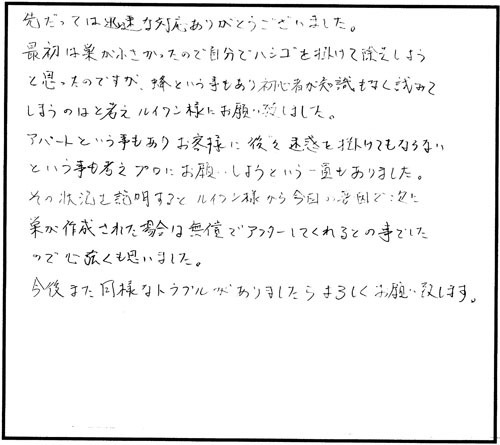 先だっては迅速な対応ありがとうございました。
最初は巣が小さかったので自分でハシゴを掛けて除去しよう
と思ったのですが、蜂という事もあり初心者が知識もなく試みて
しまうのはと考え ルイワン様にお願い致しました。
アパートという事もあり お客様に後々迷惑を掛けてもならない
という事も考え プロにお願いしようという一面もありました。
その状況を説明すると ルイワン様から今回の要因で次に
巣が作成された場合は無償でアフターしてくれるとの事でした
ので心強くも思いました。
今後また同様なトラブルがありましたらよろしくお願い致します。